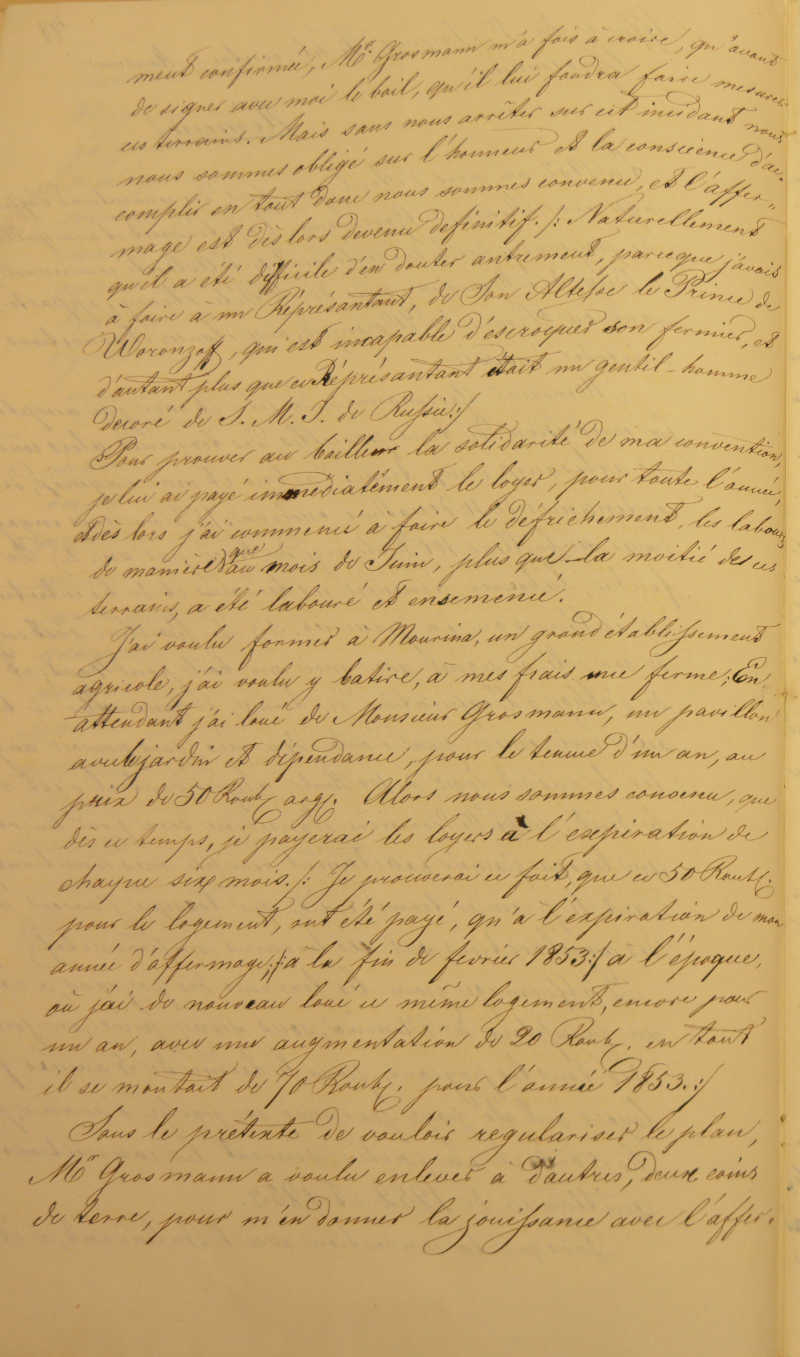 ment confirmée, Mr. Grosmann m'a fais à croire, qu'avant
de signer avec moi le bail, qu'il lui foudra faire mesurer
ces terrains. Mais sans nous arrêter sur cet incidant nous
nous sommes obligé sur l'honneur et la conscience d'ac-
complir en tout donc nous sommes convenu, et l'affer-
mage est dès lors devenu definitif. /: Naturellement
qu'il a été difficile d'en douter antrement, parceque j'avois
à faire à un Réprésantant, de Son Altesse le Prince de
Woronzoff, qui est incapable d'escroquer son fermier, et
d'autant plus que ce Réprésantant était un gentil-homme
decoré de S. M. I. de Russie :/
Pour prouver au bailleur la solidarité de ma convention,
je lui ai payé immediatément le loyer, pour toute l'année,
et dès lors j'ai commencé à faire le défrichement, les labours
de manière que au mois de Juin, plus que la moitié de ces
terrains, a été labouré et ensemencé.
J'ai voulu former à Mourina, un grand établissement
agricole, j'ai voulu y batire, à mes frais une ferme; En
attendant j'ai loué de Monsieur Grosmann, un pavillon
avec jardin et dépendance, pour le terme d'un an, au
prix de 50 Roub. arg. Alors nous sommes convenu, que
dès ce temps, je payerai les loyers à l'expiration de
chaque six mois. /: Je prouverai ce fait, que ce 50 Roub.
pour le logement, ont été payé, qu'à l'expiration de mon
année d'affermage, /: à la fin de fevrier 1853 :/ à l'époque,
où j'ai de nouveau loué ce même logement, encore pour
un an, avec une augmentation de 20 Roub. en tout
il se montait de 70 Roub. pour l'année 1853. :/
Sous le prétexte de vouloir regulariser le plan,
Mr Grosmann a voulu enlever à d'autres, deux coins
de terre, pour m'en donner la jouissance avec l'affer-